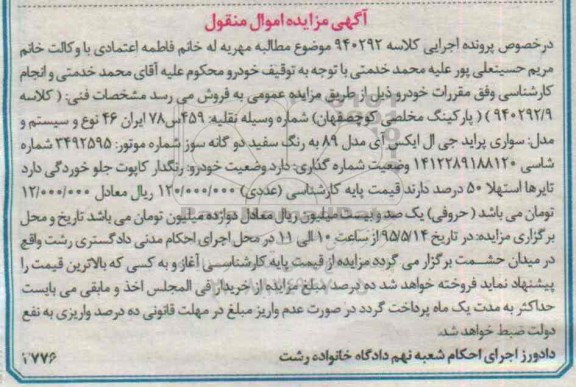 آگهی مزایده اموال منقول
درخصوص پرونده اجرایی کلاسه ۹۴۰۲۹۲ موضوع مطالبه مهریه له خانم فاطمه اعتمادی با وکالت خانم
مریم حسینعلی پور علیه محمد خدمتی با توجه به توقیف خودرو محکوم علیه آقای محمد خدمتی و انجام
کارشناسی وفق مقررات خودرو ذیل از طریق مزایده عمومی به فروش می رسد مشخصات فنی: ( کلاسه
۹۴۰۲۹۲/۹ ) ( پارکینگ مخلصی کوچصفهان) شماره وسیله نقلیه: ۴۵۹س۷۸ ایران ۴۶ نوع و سیستم و
مدل: سواری پراید جی ال ایکس آی مدل ۸۹ به رنگ سفید دو گانه سوز شماره موتور: ۳۴۹۲۵۹۵ شماره
شاسی ۱۴۱۲۲۸۹۱۸۸۱۲۰ وضعیت شماره گذاری: دارد وضعیت خودرو: رنگدار کاپوت جلو خوردگی دارد
تایرها استهلا ۵۰ درصد دارند قیمت پایه کارشناسی (عددی) ۱۲۰/۰۰۰/۰۰۰ ریال معادل ۱۲/۰۰۰/۰۰۰
تومان می باشد ( حروفی) یک صد و بیست میلیون ریال معادل دوازده میلیون تومان می باشد تاریخ و محل
برگزاری مزایده: در تاریخ ۹۵/۵/۱۴ از ساعت ۱۰ الی ۱۱ در محل اجرای احکام مدنی دادگستری رشت واقع
در میدان حشمت برگزار می گردد مزایده از قیمت پایه کارشناسی آغاز و به کسی که بالاترین قیمت را
پیشنهاد نماید فروخته خواهد شد ده درصد مبلغ مزایده از خریدار فی المجلس اخذ و مابقی می بایست
حداکثر به مدت یک ماه پرداخت گردد در صورت عدم واریز مبلغ در مهلت قانونی ده درصد واریزی به نفع
دولت ضبط خواهد شد.
دادورز اجرای احکام شعبه نهم دادگاه خانواده رشت
۱۷۷۶